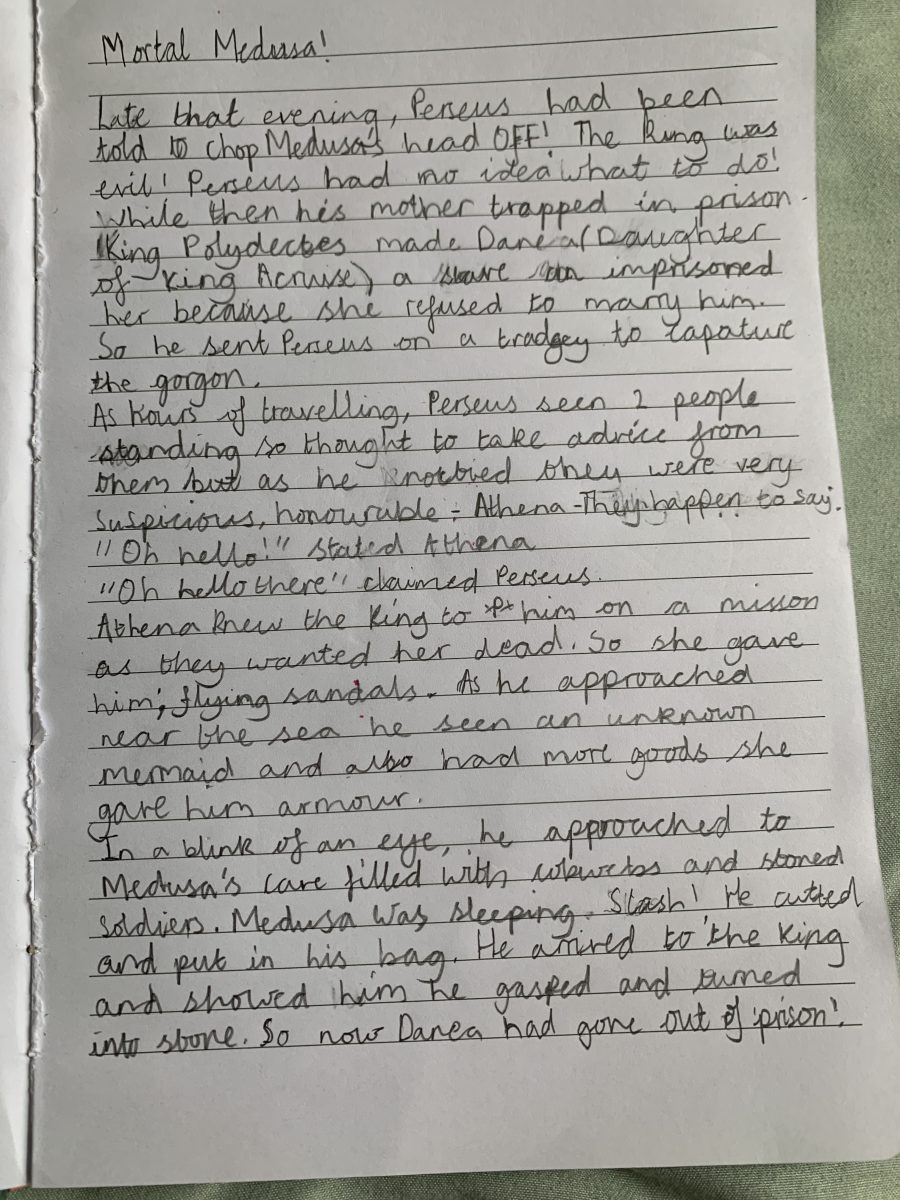 Mortal Medusa!
Late that evening, Perseus had been
told to chop Medusa's head OFF! The King was
evil! Perseus had no idea what to do!
While then his mother trapped in prison.
King Polydectes made Danea (Daughter
of King Acruise) a slave an imprisoned
her because she refused to marry him.
So he sent Perseus on a tradgey to capature
the gorgon.
As hours of travelling, Perseus seen 2 people
standing so thought to take advice from
them but as he notbied they were very
suspicious, honourable - Athena - They happen to say.
"Oh hello!" stated Athena
"Oh hello there" claimed Perseus.
Athena knew the King to him on a misson
as they wanted her dead. So she gave
him; flying sandals. As he approached
near the sea he seen an unknown
mermaid and also had more goods she
gave him armour.
In a blink of an eye, he approached to
Medusa's cave filled with cobwebs and stoned
soldiers. Medusa was sleeping. Slash! He cutted
and put in his bag. He arrived to the King
and showed him he gasped and turned
into stone. So now Danea had gone out of prison!.